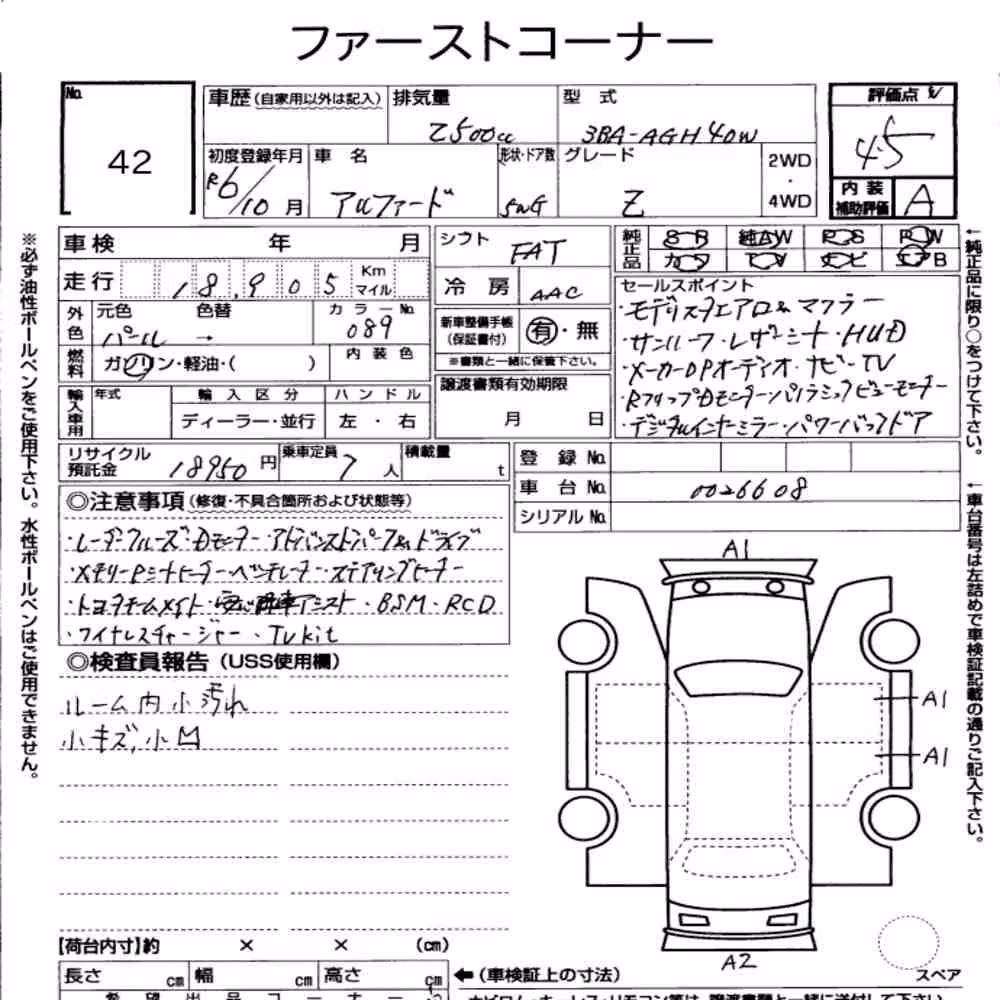 ファーストコーナー
No.
42
車歴(自家用以外は記入)
排気量
2500cc
型 式
3BA-AGH40W
評価点
4.5
初度登録年月
R6/10月
車 名
アルファード
形状・ドア数
5WG
グレード
Z
2WD
・
4WD
内装
補助評価
A
車検 年 月
シフト
FAT
純正品
S R 純AW P S P W
カワ T V ナビ エアB
走行 18,905 Km マイル
冷 房
AAC
セールスポイント
・モデリスタエアロ&マフラー
・サンルーフ・レザーシート・HUD
・メーカーOPオーディオ・ナビ・TV
・Rフリップダモニター・パノラミックビューモニター
・デジタルインナーミラー・パワーバックドア
外色
元色 色替 カラーNo.
パール → 089
新車整備手帳
(保証書付)
有・無
※書類と一緒に保管下さい。
燃料
ガソリン・軽油・( )
内 装 色
譲渡書類有効期限
月 日
輸入車用
年式
輸 入 区 分
ディーラー・並行
ハ ン ド ル
左 ・ 右
リサイクル
預託金
18950円
乗車定員
7人
積載量
t
登 録 No.
車 台 No.
0026608
シリアルNo.
◎注意事項(修復・不具合箇所および状態等)
・レーダークルーズ・Dモニター・アドバンストパーク&ドライブ
・メモリーPシートヒーター・ベンチレーター・ステアリングヒーター
・トヨタチームメイト・アシスト・BSM・RCD
・ワイヤレスチャージャー・TVkit
◎検査員報告(USS使用欄)
ルーム内小汚れ
小キズ、小凹
A1
A1
A1
A2
スペア
【荷台内寸】約 × × (cm)
長さ cm 幅 cm 高さ cm
←(車検証上の寸法)
希 望 出 品 コ ー ナ ー
※必ず油性ボールペンをご使用下さい。水性ボールペンはご使用できません。
←純正品に限り○をつけて下さい。
←車台番号は左詰めで車検証記載の通りご記入下さい。